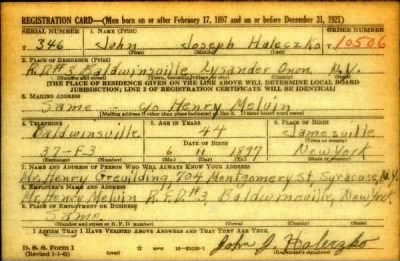 REGISTRATION CARD—(Men born on or after February 17, 1897 and on or before December 31, 1921)
SERIAL NUMBER 1. NAME (Print) ORDER NUMBER
T 346 John Joseph Haleczko 10506
(First) (Middle) (Last)
2. PLACE OF RESIDENCE (Print)
R.D.#3 Baldwinsville Lysander Onon N.Y.
(Number and street) (Town, township, village, or city) (County) (State)
[THE PLACE OF RESIDENCE GIVEN ON THE LINE ABOVE WILL DETERMINE LOCAL BOARD
JURISDICTION; LINE 2 OF REGISTRATION CERTIFICATE WILL BE IDENTICAL]
3. MAILING ADDRESS
Same - c/o Henry Melvin
[Mailing address if other than place indicated on line 2. If same insert word same]
4. TELEPHONE 5. AGE IN YEARS 6. PLACE OF BIRTH
Baldwinsville 44 Jamesville
DATE OF BIRTH (Town or county)
37-F3 6 11 1897 New York
(Exchange) (Number) (Mo.) (Day) (Yr.) (State or country)
7. NAME AND ADDRESS OF PERSON WHO WILL ALWAYS KNOW YOUR ADDRESS
Mr. Henry Greuilding, 704 Montgomery St Syracuse, N.Y.
8. EMPLOYER'S NAME AND ADDRESS
Mr. Henry Melvin R.F.D.#3, Baldwinsville, New York
9. PLACE OF EMPLOYMENT OR BUSINESS
Same
(Number and street or R. F. D. number) (Town) (County) (State)
I AFFIRM THAT I HAVE VERIFIED ABOVE ANSWERS AND THAT THEY ARE TRUE.
D. S. S. Form 1
(Revised 1-1-42) (over) John J. Haleczko
(Registrant's signature)